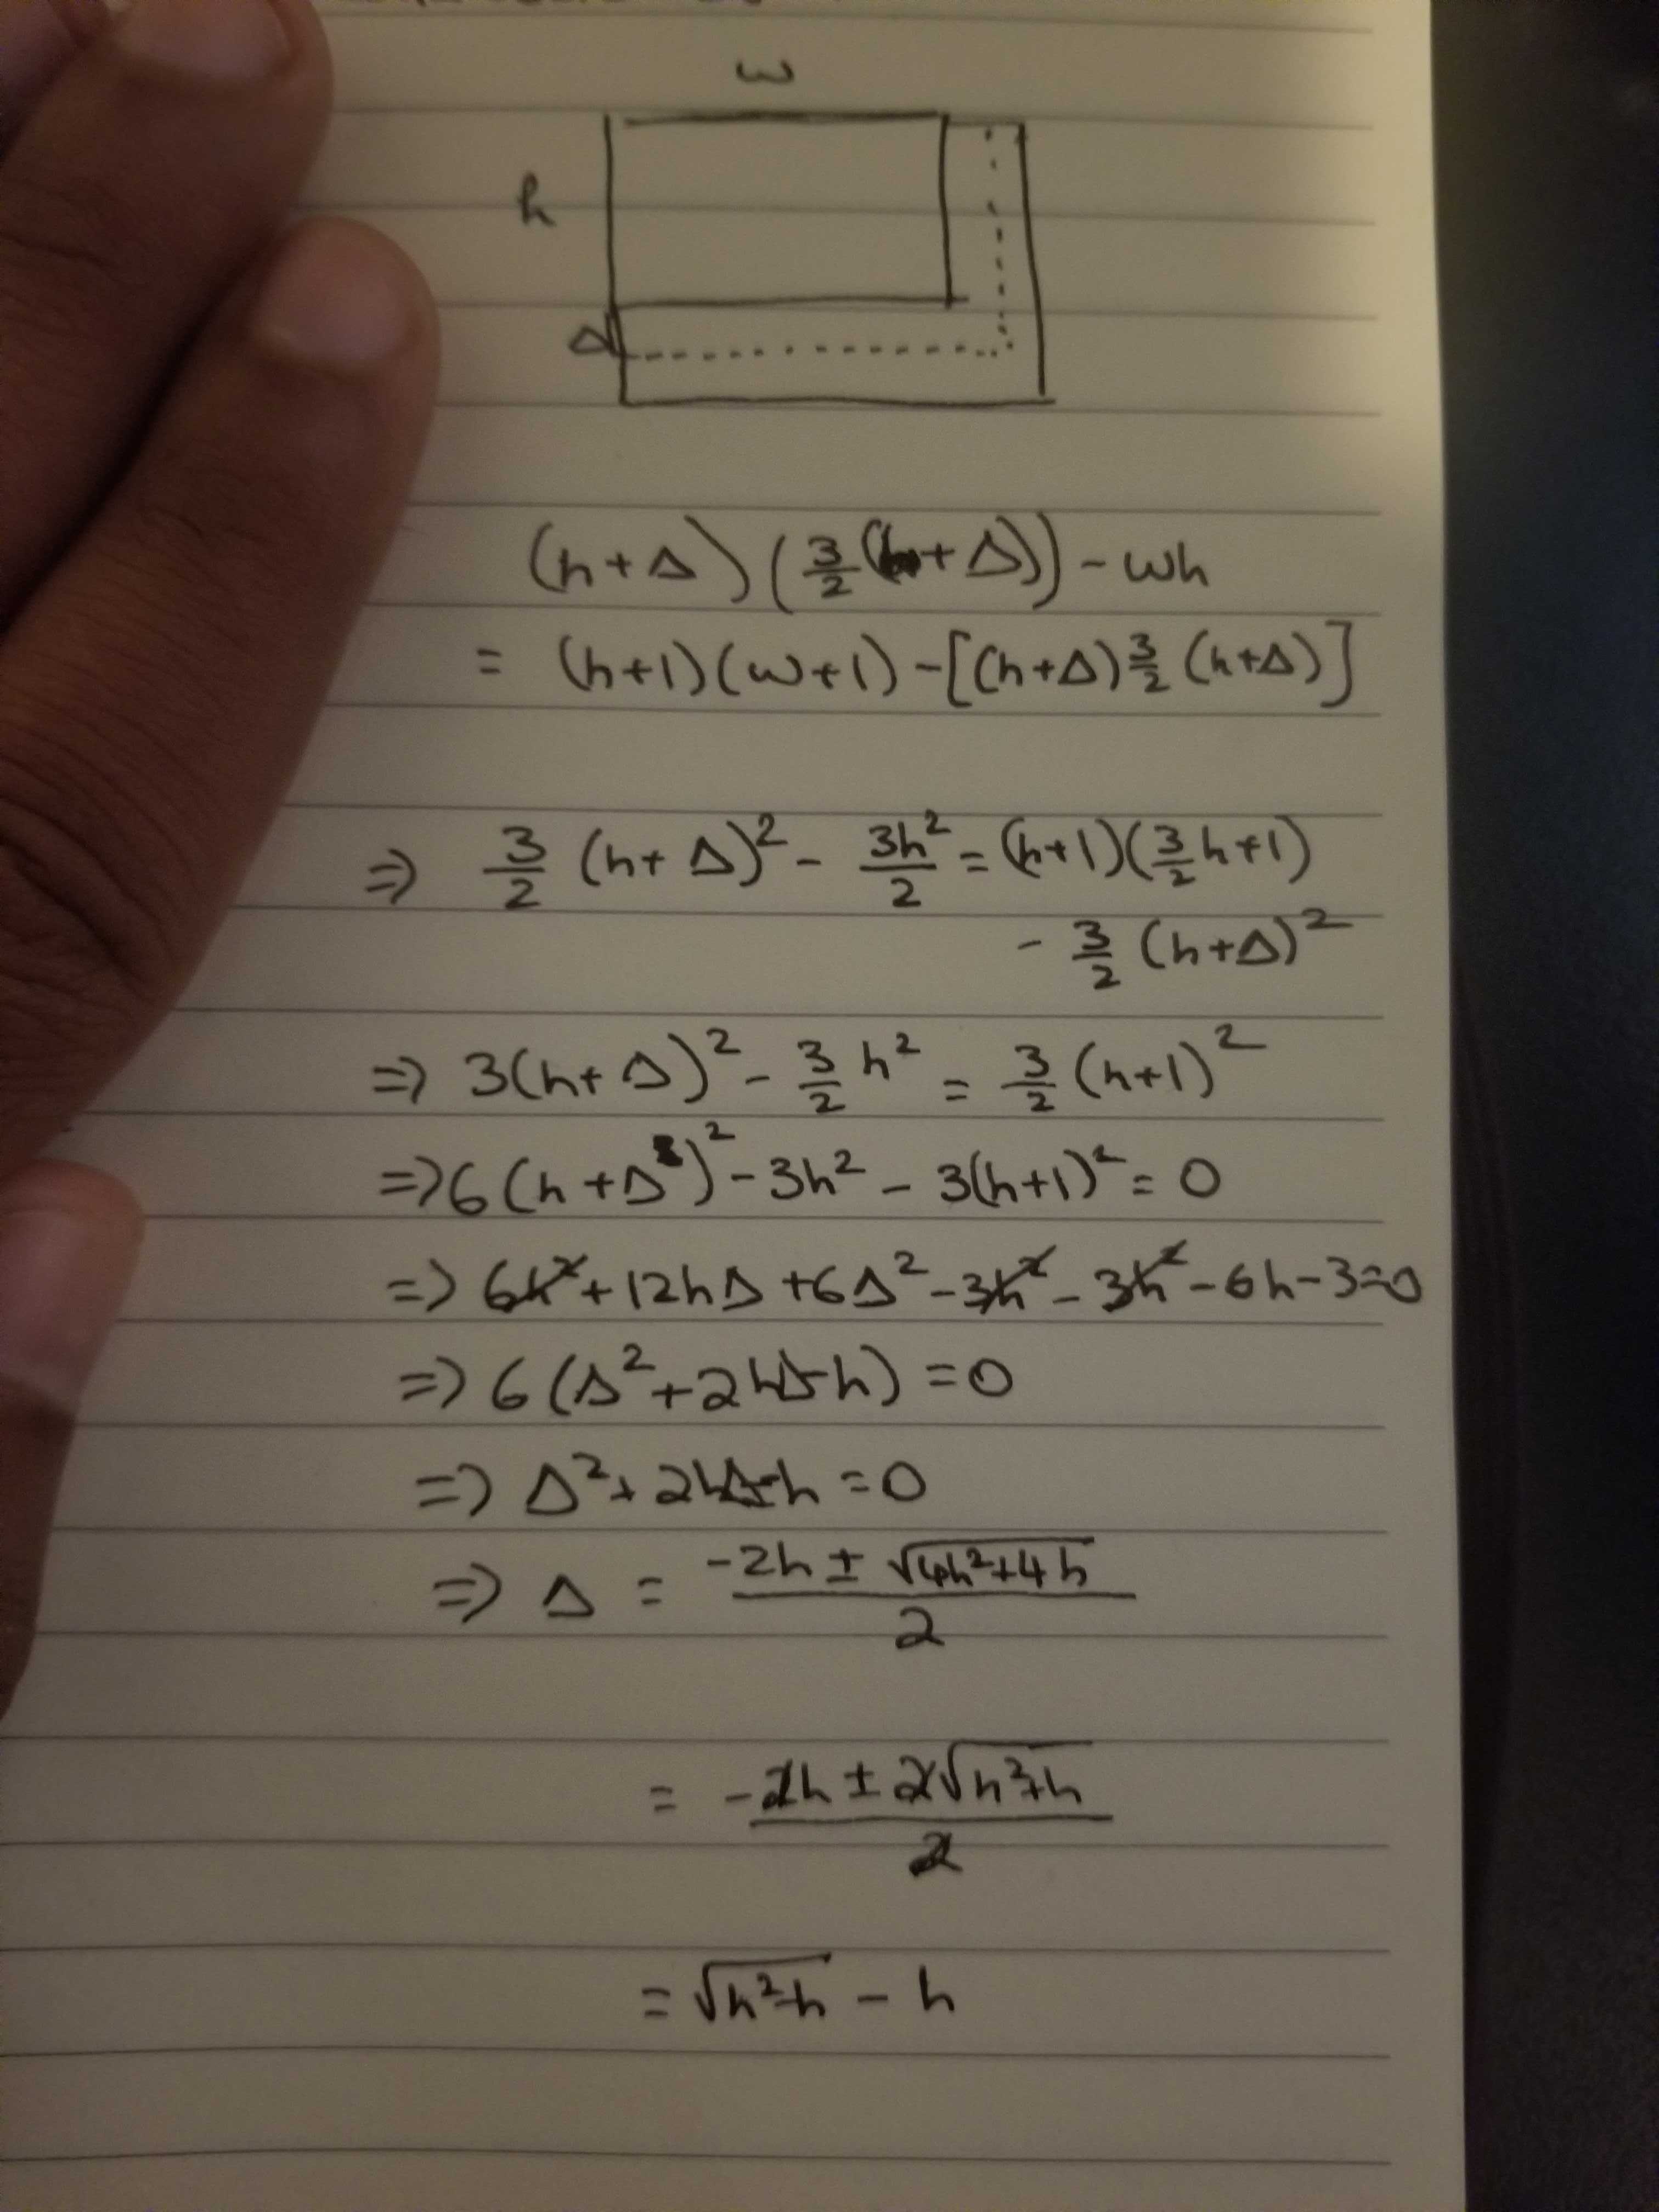 w
h
Δ
(h+Δ)(3/2(h+Δ)) - wh
= (h+1)(w+1) - [(h+Δ) 3/2 (h+Δ)]
⇒ 3/2 (h+Δ)² - 3h²/2 = (h+1)(3/2 h+1)
- 3/2 (h+Δ)²
⇒ 3(h+Δ)² - 3/2 h² = 3/2 (h+1)²
⇒ 6(h+Δ)² - 3h² - 3(h+1)² = 0
⇒ 6h² + 12hΔ + 6Δ² - 3h² - 3h² - 6h - 3 = 0
⇒ 6(Δ² + 2hΔ - h) = 0
⇒ Δ² + 2hΔ - h = 0
⇒ Δ = (-2h ± √(4h²+4h))/2
= (-2h ± 2√(h²+h))/2
= √(h²+h) - h